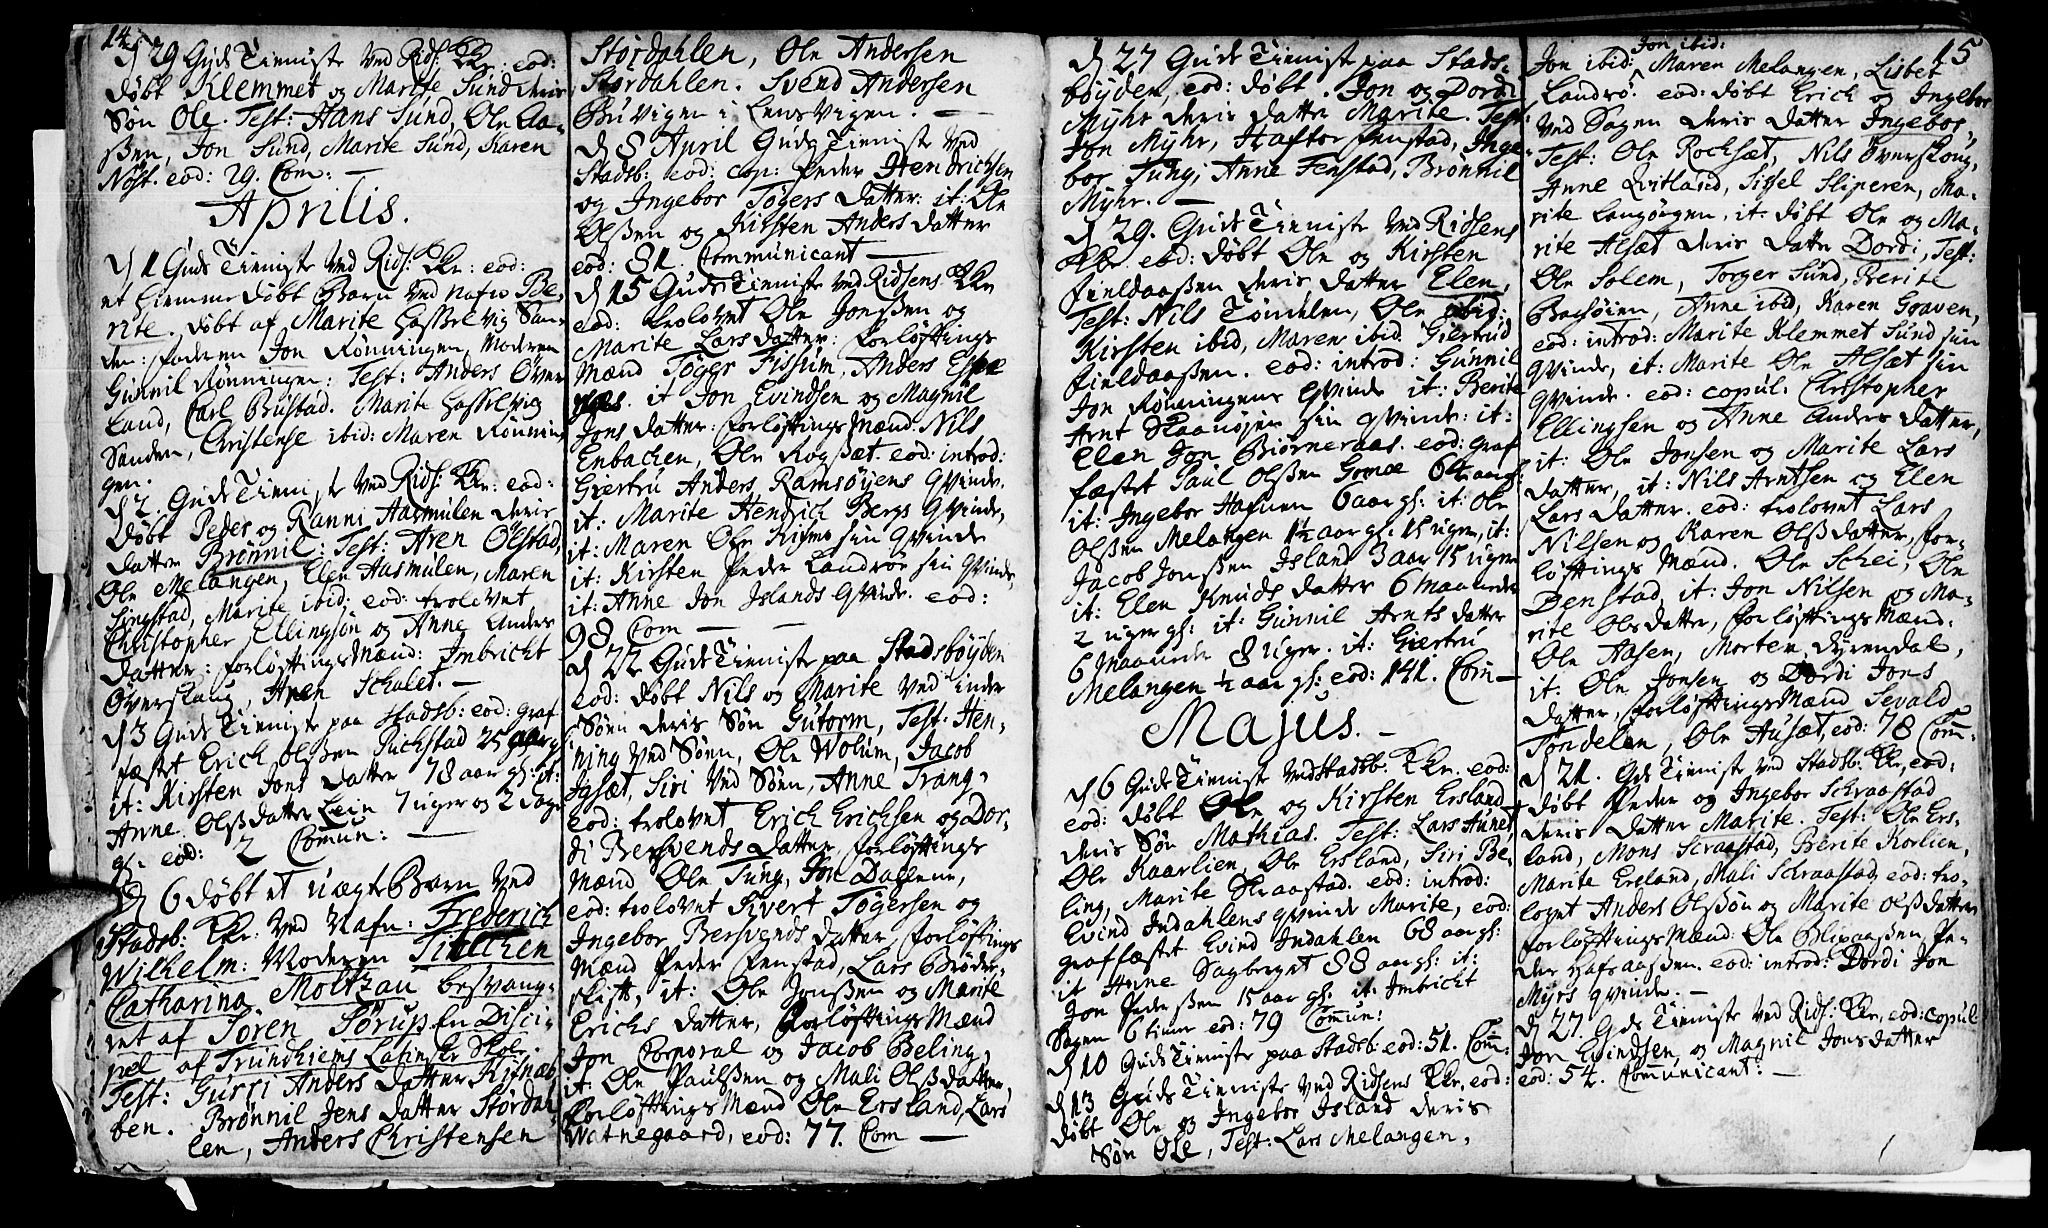 14.
d 29 Guds Tieniste ved Rids: Kr: eod:
døbt Klemmet og Marite Sund deris
Søn Ole. Test: Hans Sund, Ole Aa-
ßen, Jon Sund, Marite Sund, Karen
Nøst. eod: 29. Com: —
Aprilis.
d 1 Guds Tieniste ved Rids: Kr: eod:
et hiemmedøbt Barn ved nafn Be-
rite. døbt af Marite Hasselvig San-
den: faderen Jon Rønningen, Moderen
Gunnil Rønningen: Test: Anders Över
Land, Carl Bustad. Marite Hasselvig
Sanden, Christense ibid: Maren Rønnin-
gen.
d 2. Guds Tieniste ved Rids: Kr: eod:
døbt Peder og Ranni Aasmulen deris
datter Brønnil: Test: Aren Ölstad,
Ole Melangen, Elen Aasmulen, Maren
Singstad, Marite ibid: eod: trolovet
Christopher Ellingsøn og Anne Anders
datter: forløftings Mænd: Imbricht
Overskaug, Aren Schalet. —
d 3 Guds Tieniste paa Stadsb: eod: graf
fæstet Erich Olsßen Ruchstad 25 aar g:
it: Kirsten Jons datter 78 aar gl: it:
Anne Olsßdatter Lein 7 uger og 2 dage
gl. eod: 2 Comun: —
d 6 døbt et uægte Barn ved
Stadsb: Kr: ved Nafn: Frederich
Wilhelm: Moderen
Catharina Moltzau besvang-
ret af Søren Sørup En Disci-
pel af Trundhiems Latinske Skole
Test: Gurri Anders datter Rifnæb-
ben. Brønnil Jens datter Stordah-
len, Anders Christensen
Stordahlen, Ole Andersen
Stordahlen. Svend Andersen
Buvigen i Lensvigen. —
d 8 April Guds Tieniste ved
Stadsb: eod: cop: Peder Hendrichsen
og Ingebor Tøgers datter: it: Ole
Olsßen og Kirsten Anders datter
eod: 81 Communicant —
d 15 Guds Tieniste ved Ridsens Kr
eod: trolovet Ole Jonsßen og
Marite Lars datter: forløftings
Mænd Tøger Fissum, Anders Espe
næs. it Jon Evindsen og Magnil
Jons datter: forløftings Mænd Nils
Enbachen, Ole Rogsæt. eod: introd:
Giertru Anders Ramsøyens Qvinde.
it: Marite Hendrich Bergs Qvinde,
it: Maren Ole Kismo sin Qvinde
it: Kirsten Peder Landrøe sin Qvinde,
it: Anne Jon Islands Qvinde. eod:
98 Com — —
d 22 Guds Tieniste paa Stadsbøyden
eod: døbt Nils og Marite ved inder
Søen deris Søn Gutorm, Test: Hen-
ning ved Søen, Ole Wolum, Jacob
Igsæt, Siri ved Søen, Anne Trang.
eod: trolovet Erich Erichsen og Dor-
di Bersvends datter, forløftings
Mænd Ole Tung, Jon Dallene,
eod: trolovet Sivert Tøgersen og
Ingebor Bersvends datter, forløftings
Mænd Peder Fenstad, Lars Brøder-
skift, it: Ole Jonsßen og Marite
Erichs datter, forløftings Mænd
Jon Corporal og Jacob Beling,
it Ole Paulsßen og Mali Olsßdatter,
forløftings Mænd Ole Ersland, Lars
Watnegaard, eod: 77. Com —
d 27 Guds Tieniste paa Stads-
bøyden, eod: døbt. Jon og Dordi
Myhr deris datter Marite. Test:
Jon Myhr, Haftor Fenstad, Inge-
bor Tung, Anne Fenstad, Brønnil
Myhr. —
d 29. Guds Tieniste ved Ridsens
Kr. eod: døbt Ole og Kirsten
Fieldaasßen deris datter Elen,
Test: Nils Tøndelen, Ole ibid:
Kirsten ibid, Maren ibid Giertrud
Fieldaasßen. eod: introd: Gunnil
Jon Rønningens Qvinde it: Berite
Arnt Staanøsen sin qvinde: it:
Elen Jon Biørneraas. eod: graf
fæstet Paul Olsßen Gomoe 64 aar gl:
it: Ingebor Hafnen 6 aar gl: it: Ole
Olsßen Melangen 1½ aar gl: 15 uger, it:
Jacob Jonsßen Island 3 aar 15 uger
it: Elen Knuds datter 6 maaneder
2 uger gl: it: Gunnil Arnts datter
6 Maaneder 8 Uger. it: Giertru
Melangen ½ aar gl: eod: 141. Com —
Majus. —
d 6 Guds Tieniste ved Stadsb: Kr. eod:
eod: døbt Ole og Kirsten Ersland
deris Søn Mathias. Test: Lars Aunet
Ole Kaarlien Ole Ersland, Siri Be-
ling, Marite Skraastad. eod: introd:
Evind Indahlens qvinde Marite, eod:
graffæstet Evind Indahlen 68 aar gl:
it Anne Sagberget 88 aar gl: it:
Jon Pedersßen 15 aar gl: it: Imbricht
Sagen 6 timer eod: 79 Commun:
d 10 Guds Tieniste paa Stadsb: eod: 51. Com:
d 13 Guds Tieniste ved Ridsens Kr, eod:
døbt Ole og Ingebor Island deris
Søn Ole, Test: Lars Melangen,
15
Jon ibid:
Jon ibid: Maren Melangen, Lisbet
Landrø. eod: døbt Erich og Ingebor
ved Sagen deris datter Ingebor,
Test: Ole Rocksæt, Nils Overskoug,
Anne Qvitland, Sissel Sliperen, Ma-
rite Langørgen, it: døbt Ole og Ma-
rite Alsæt deris datter Dordi, Test:
Ole Solem, Torger Sund, Berite
Bachøien, Anne ibid, Karen Graven,
eod: introd: Marite Klemmet Sund sin
Qvinde, it: Marite Ole Alsæt sin
qvinde. eod: copul: Christopher
Ellingsen og Anne Anders datter,
it: Ole Jonsen og Marite Lars
datter, it: Nils Arntsen og Elen
Lars datter. eod: trolovet Lars
Nilsen og Karen Olsßdatter, for-
løftings Mænd. Ole Schei, Ole
Denstad, it: Jon Nilsen og Ma-
rite Olsdatter, forløftings Mænd:
Ole Aasen, Morten Dyrendal,
it: Ole Jonsen og Dordi Jons
datter, forløftings Mænd Sevald
Tøndelen, Ole Ausæt, eod: 78 Com:
d 21. Gds Tieniste ved Stadsb: Kr, eod:
døbt Peder og Ingebor Schraastad
deris datter Marite. Test: Ole Ers-
land, Mons Scraastad, Berite Korlien,
Marite Ersland, Mali Schraastad, eod: tro-
lovet Anders Olsßøn og Marite Olsßdatter
forløftings Mænd: Ole Blixaasßen Pe-
der Hafsaasßen. eod: introd: Dordi Jon
Myrs qvinde. —
d 27. Gds Tieniste ved Rids: Kr, eod: copul
Jon Evindsen og Magnil Jonsdatter
eod: 54. Communicant: —